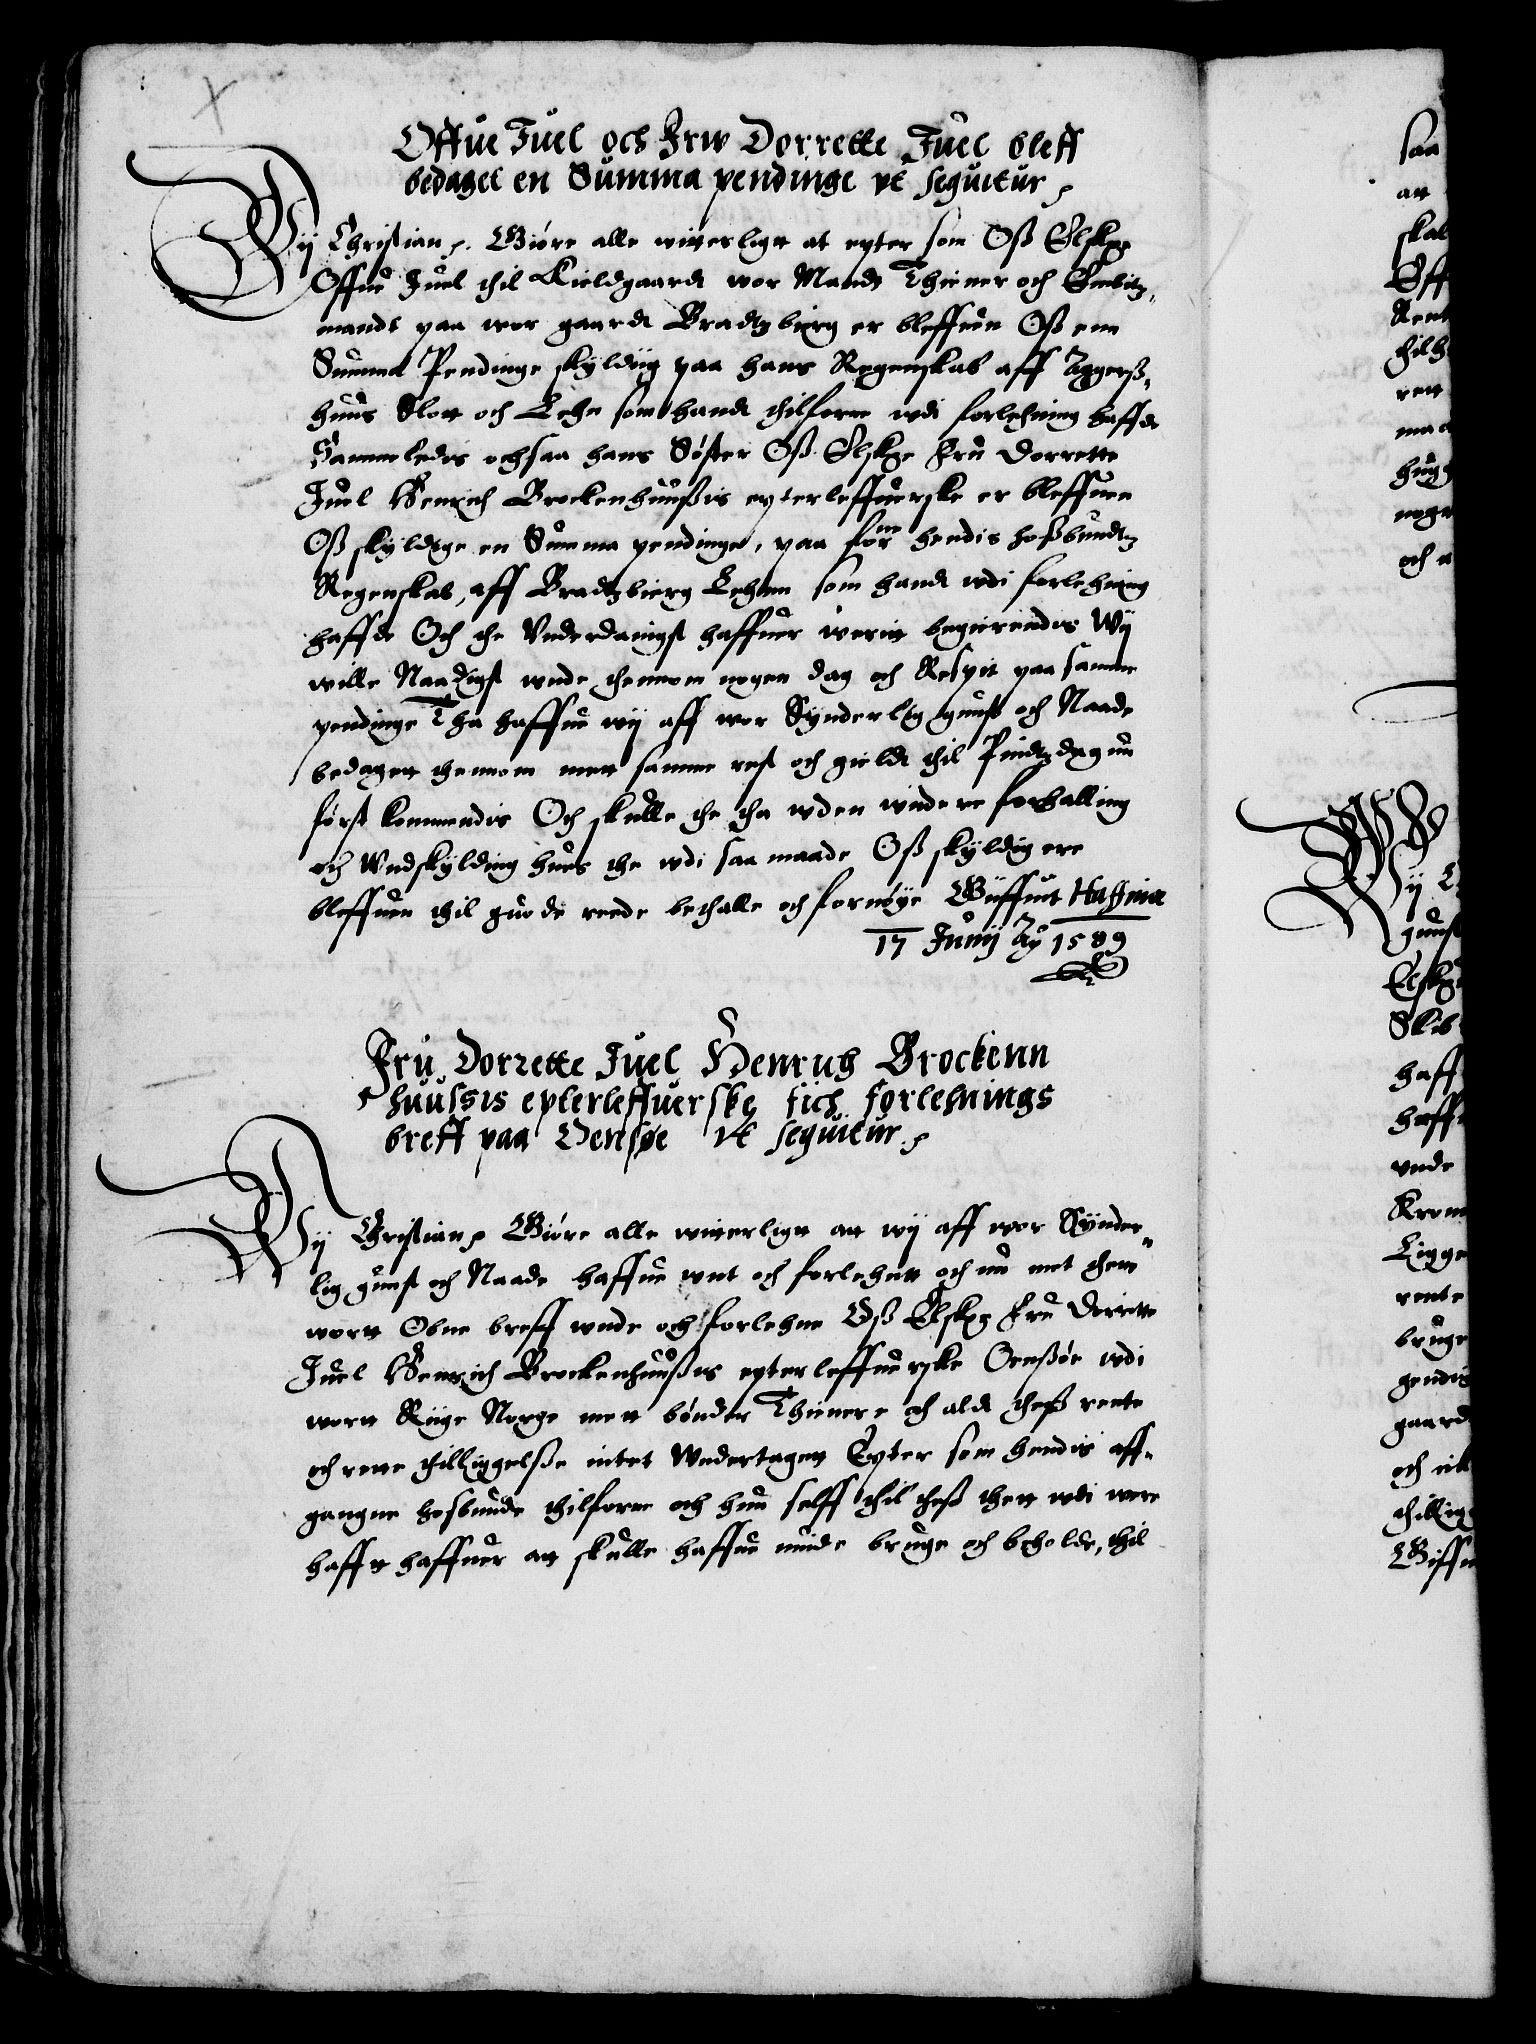 Offue Juel och Frw Dorrette Juel bleff
bedaget en Summa pendinge vt sequitur
Wij Christian. Giøre alle witterligt at epter som Oß Elskge
Offue Juel thil Kieldgaardt wor Mandt Thiener och Embitz,
mandt paa wor gaardt Bradtzbierg er bleffuen Oß enn
Summa Pendinge skyldiig paa hans Regenskab aff Aggerß,
huus Slott och Lehn som handt thilforne udi forlehning haffde
Sammeledis ochsaa hans Søster Oß Elskge Fru Dorrette
Juel Henrich Brockenhuußis epterleffuerske er bleffuen
Oß skyldige en Summa pendinge, paa forne hendis hoßbundtz
Regenskab, aff Bradtzbierg Lehnn som handt udi forlehning
haffde Och the Underdanigst haffuer werit begierendis Wij
wille Naadigst unde thennom nogen dag och Respit paa samme
pendinge Tha haffue wij aff wor Synderlig gunst och Naade
bedagett thennom mett samme rest och gieldt thil Pindtzdag nu
først kommendis Och skulle the tha uden widere forhalling
och Undskylding hues the udi saa maade Oß skyldig ere
bleffuen thil guode rede bethalle och fornøye Giffuit Haffniæ
17 Junij Aÿ 1589
Fru Dorrette Juel Henrich Brockenn
huussis epterleffuerske fich forlehnings
breff paa Oensøe vt sequitur
Wij Christian Giøre alle witterligt att wij aff wor Synder,,
lig gunst och Naade haffue unt och forlehntt och nu met thette
wortt Obne breff unde och forlehne Oß Elskge Fru Dorrette
Juel Henrich Brockenhuußis epterleffuerske Oenßøe udi
wortt Riige Norge mett bønder Thienere och aldt theß rente
och rette thilliggelße intet Undertagett Epter som hendis aff,
gangne hosbunde thilforne och hun selff thil theß thett udi were
hafft haffuer att skulle haffue niude bruge och beholde, thil
saa
att
skal
Eff
Rent
thilh
rett
och
Wij
gunst
Elskge
haff
haffu
unde
Krone
Ligge
rente
bruge
gendis
gaard
och
thillig
Giffu